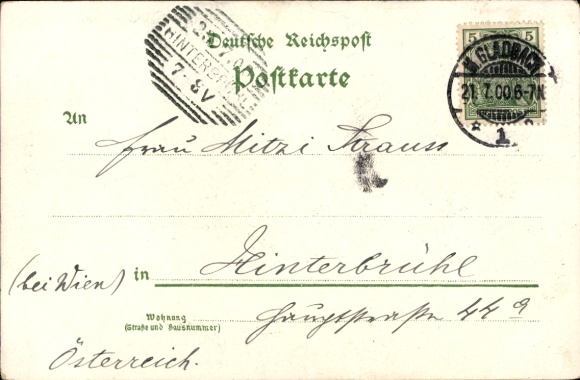 Deutsche Reichspost
Postkarte
5 5
M. GLADBACH
21.7.00.6-7N
1
HINTERBRÜHL
7-8V
An
Frau Mitzi Strauss
(bei Wien) in Hinterbrühl
Wohnung
(Straße und Hausnummer)
Hauptstraße 44a
Österreich.